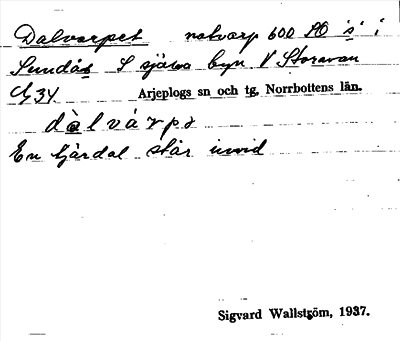 Dalvarpet notvarp 600 SO is' i
Sundås S själva byn V Storavan
Arjeplogs sn och tg, Norrbottens län.
dàlvárpə
En tjärdal står invid
Sigvard Wallström, 1937.